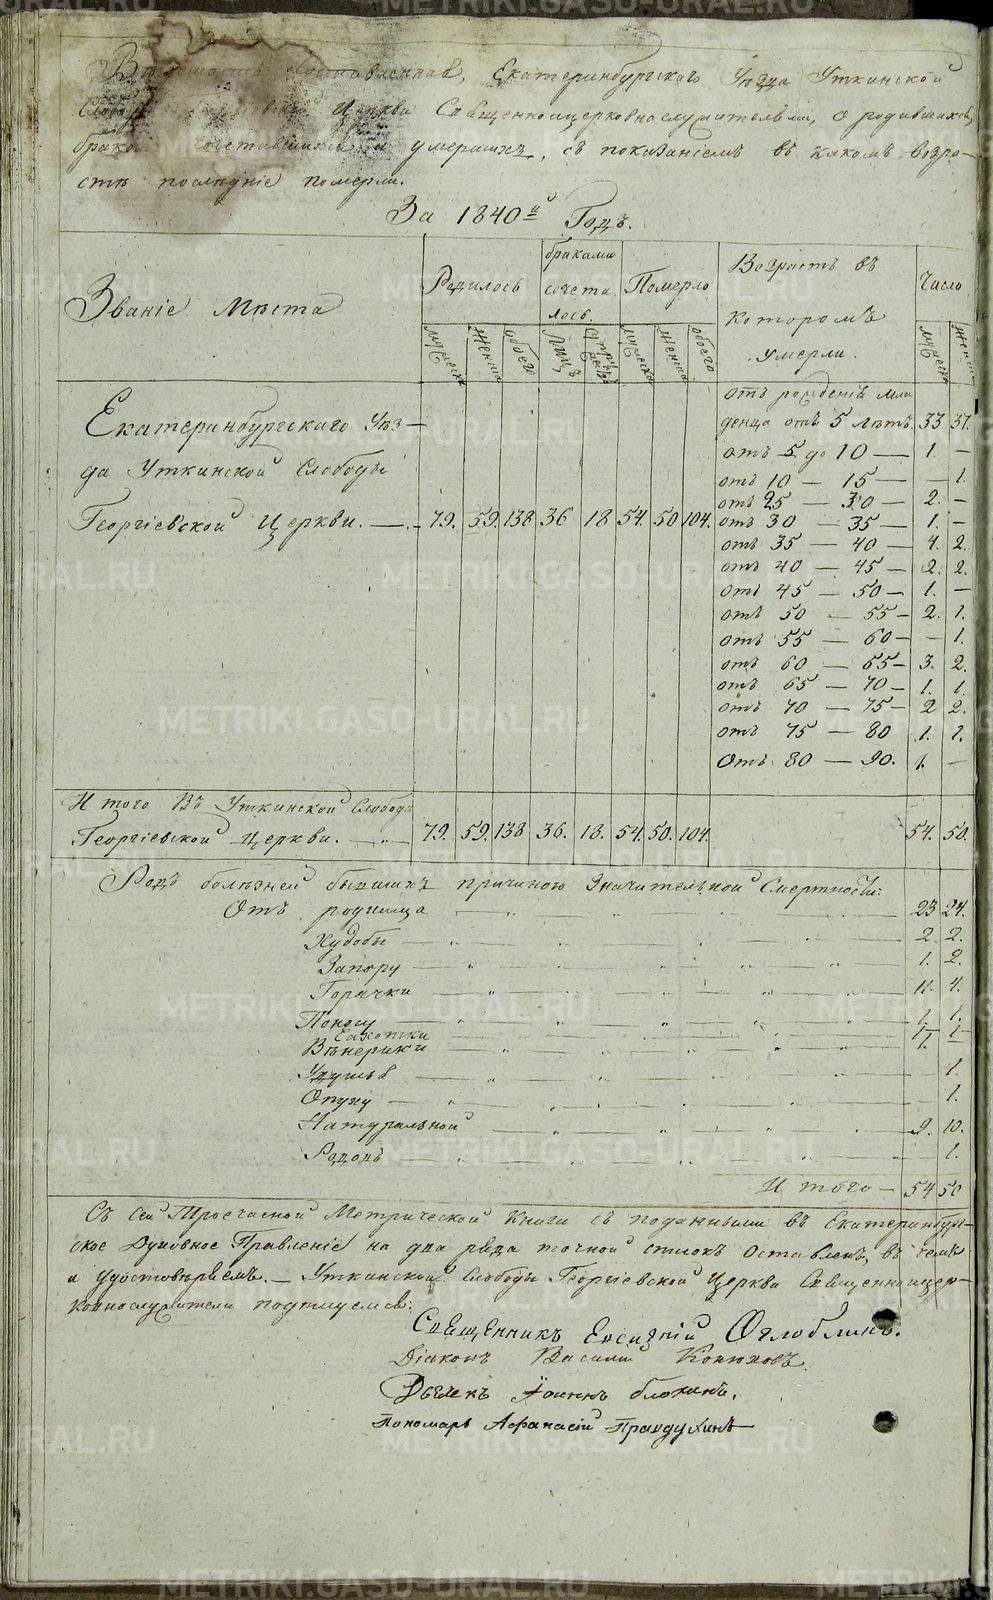 Екатеринбургскаго Уѣзда Уткинской
Церкви Священноцерковнослужителями, о родившихся,
умершихъ, съ показаніемъ въ какомъ возра-
стѣ послѣдніе померли.
За 1840й Годъ.
Званіе Мѣста
Родилось
браками сочета лось.
Померло
Возрастъ въ которомъ умерли.
Число
Мужеска Женска обоего Лицъ Мужеска Женска обоего Мужеска Женска
отъ рожденія мла
денца отъ 5 лѣтъ. 33 37.
отъ 5. до 10 — 1. —
отъ 10 — 15 — — 1.
отъ 25 — 30 — 2. —
Екатеринбургскаго Уѣз-
да Уткинской Слободы
Георгіевской Церкви. — 79. 59. 138 36 18 54. 50 104.
отъ 30 — 35 — 1. —
отъ 35 — 40 — 4. 2.
отъ 40 — 45 — 2. 2.
отъ 45 — 50 — 1. —
отъ 50 — 55 — 2. 1.
отъ 55 — 60 — — 1.
отъ 60 — 65 — 3. 2.
отъ 65 — 70 — 1. 1.
отъ 70 — 75 — 2 2.
отъ 75 — 80 1. 1.
Отъ 80 — 90. 1. —
Итого Въ Уткинской Слободѣ
Георгіевской Церкви. — 79. 59. 138 36. 18. 54. 50. 104. 54. 50.
Родъ болѣзней бывшихъ причиною Значительной Смертности:
Отъ родимца 23 24.
Худобы 2. 2.
Запору 1. 2.
Горячки 11. 4.
Поносу 1. 1.
Венерики 1. —
Удушья 1.
Опуху 1.
Натуральной 9. 10.
Родовъ 1.
Итого — 54 50
Съ Сей Троечасной Метрической Книги съ поданными въ Екатеринбург-
ское Духовное Правленіе на два ряда точной списокъ Оставленъ, въ чемъ
и удостовѣряемъ. — Уткинской Слободы Георгіевской Церкви Священноцер-
ковнослужители подпишемся:
Священникъ Евсигній Оглоблинъ.
Діаконъ Василій Конюховъ.
Дьячекъ Іоаннъ блохинъ.
Пономарь Афанасій Правдухинъ
METRIKI.GASO-URAL.RU